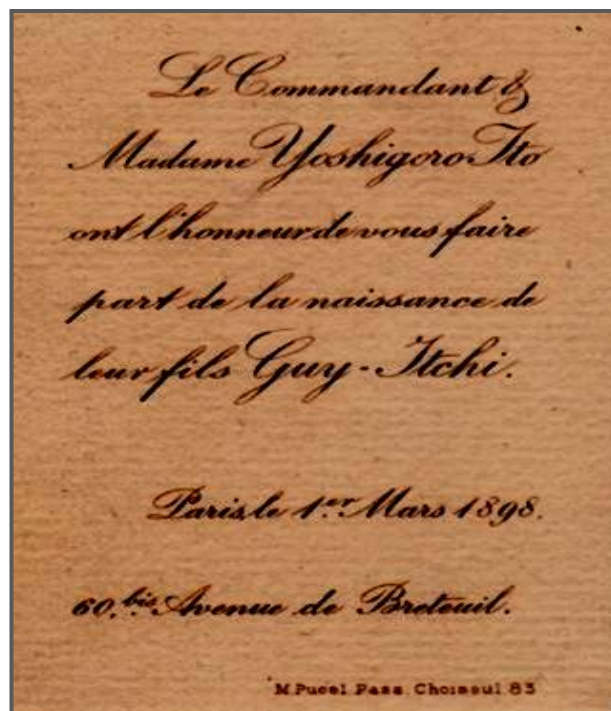 Le Commandant &
Madame Yoshigoro Ito
ont l'honneur de vous faire
part de la naissance de
leur fils Guy-Itchi.
Paris, le 1er. Mars 1898.
60.bis. Avenue de Breteuil.
M. Pucel. Pass. Choiseul. 83